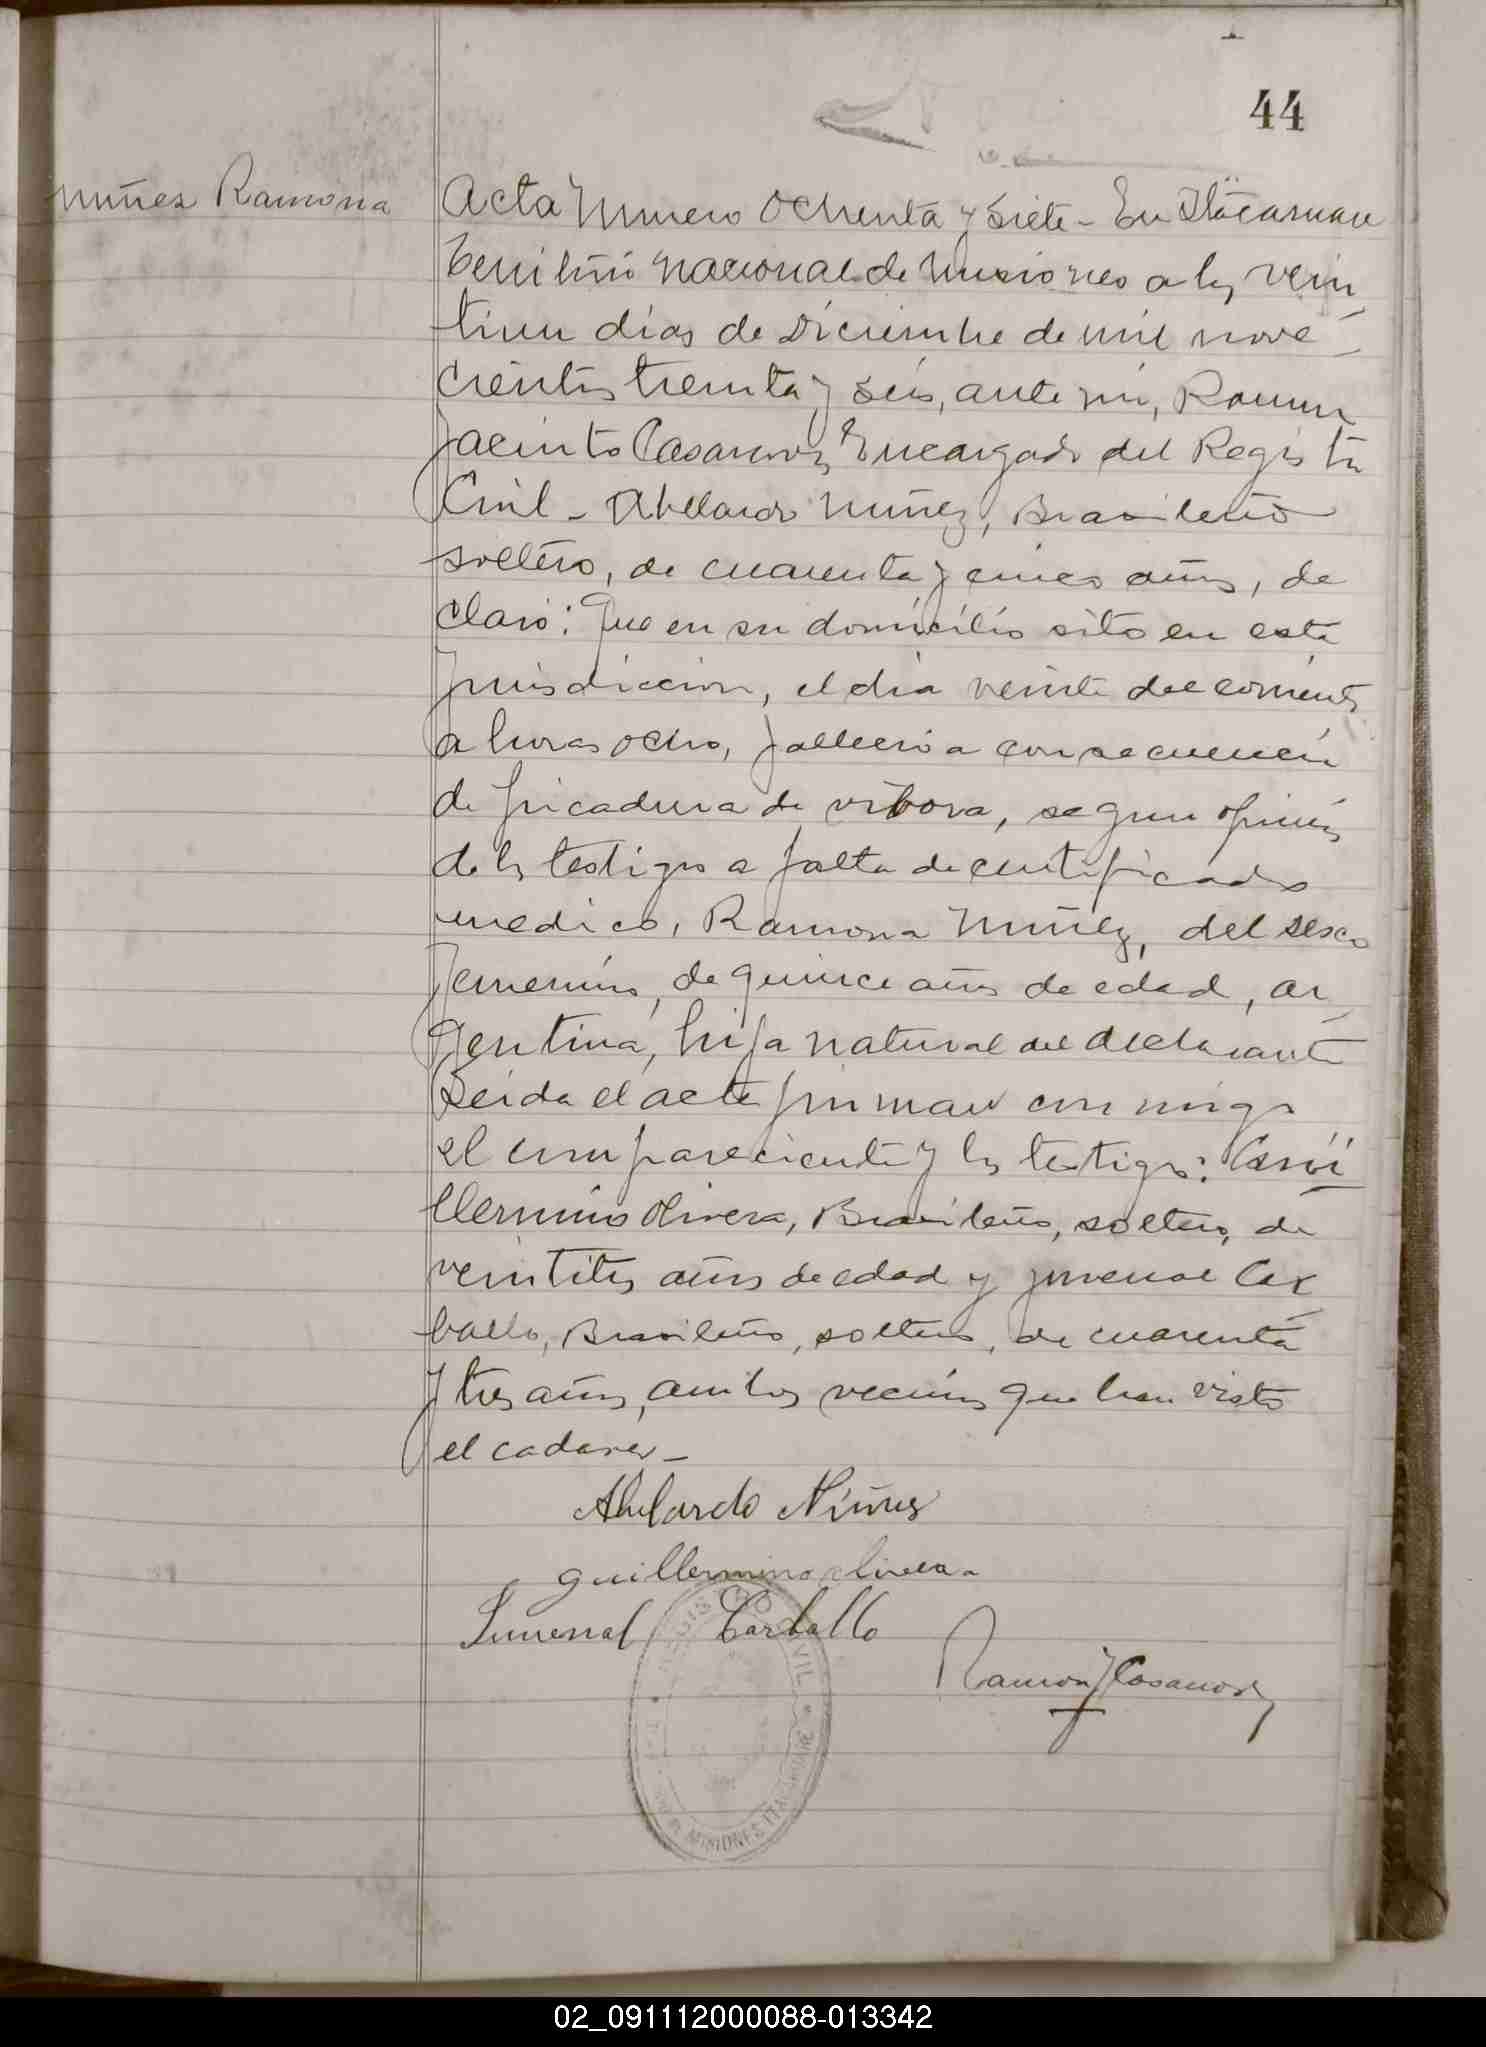 44
Nuñez Ramona
Acta Numero Ochenta y Siete - En Itacaruare
Territorio Nacional de Misiones a los vein
tiun dias de Diciembre de mil nove
cientos treinta y seis, ante mi, Ramon
Jacinto Casanova, Encargado del Registro
Civil - Abelardo Nuñez, Brasileño
soltero, de cuarenta y cinco años, de
claró: Que en su domicilio sito en esta
Jurisdiccion, el dia veinte del corriente
a horas ocho, fallecio a consecuencia
de picadura de vibora, segun opinion
de los testigos a falta de certificado
medico, Ramona Nuñez, del sexo
femenino, de quince años de edad, ar
gentina, hija natural del declarante
Leida el acta firman con migo
el compareciente y los testigos:
llermino Olivera, Brasileño, soltero, de
veintitres años de edad y Juvenal Car
ballo, Brasileño, soltero, de cuarenta
y tres años, ambos vecinos que han visto
el cadaver -
Abelardo Núñes
guillermino olivera
Juvenal Carballo
Ramon J Casanova
REGISTRO CIVIL
MISIONES ITACARUARE
02_091112000088-013342